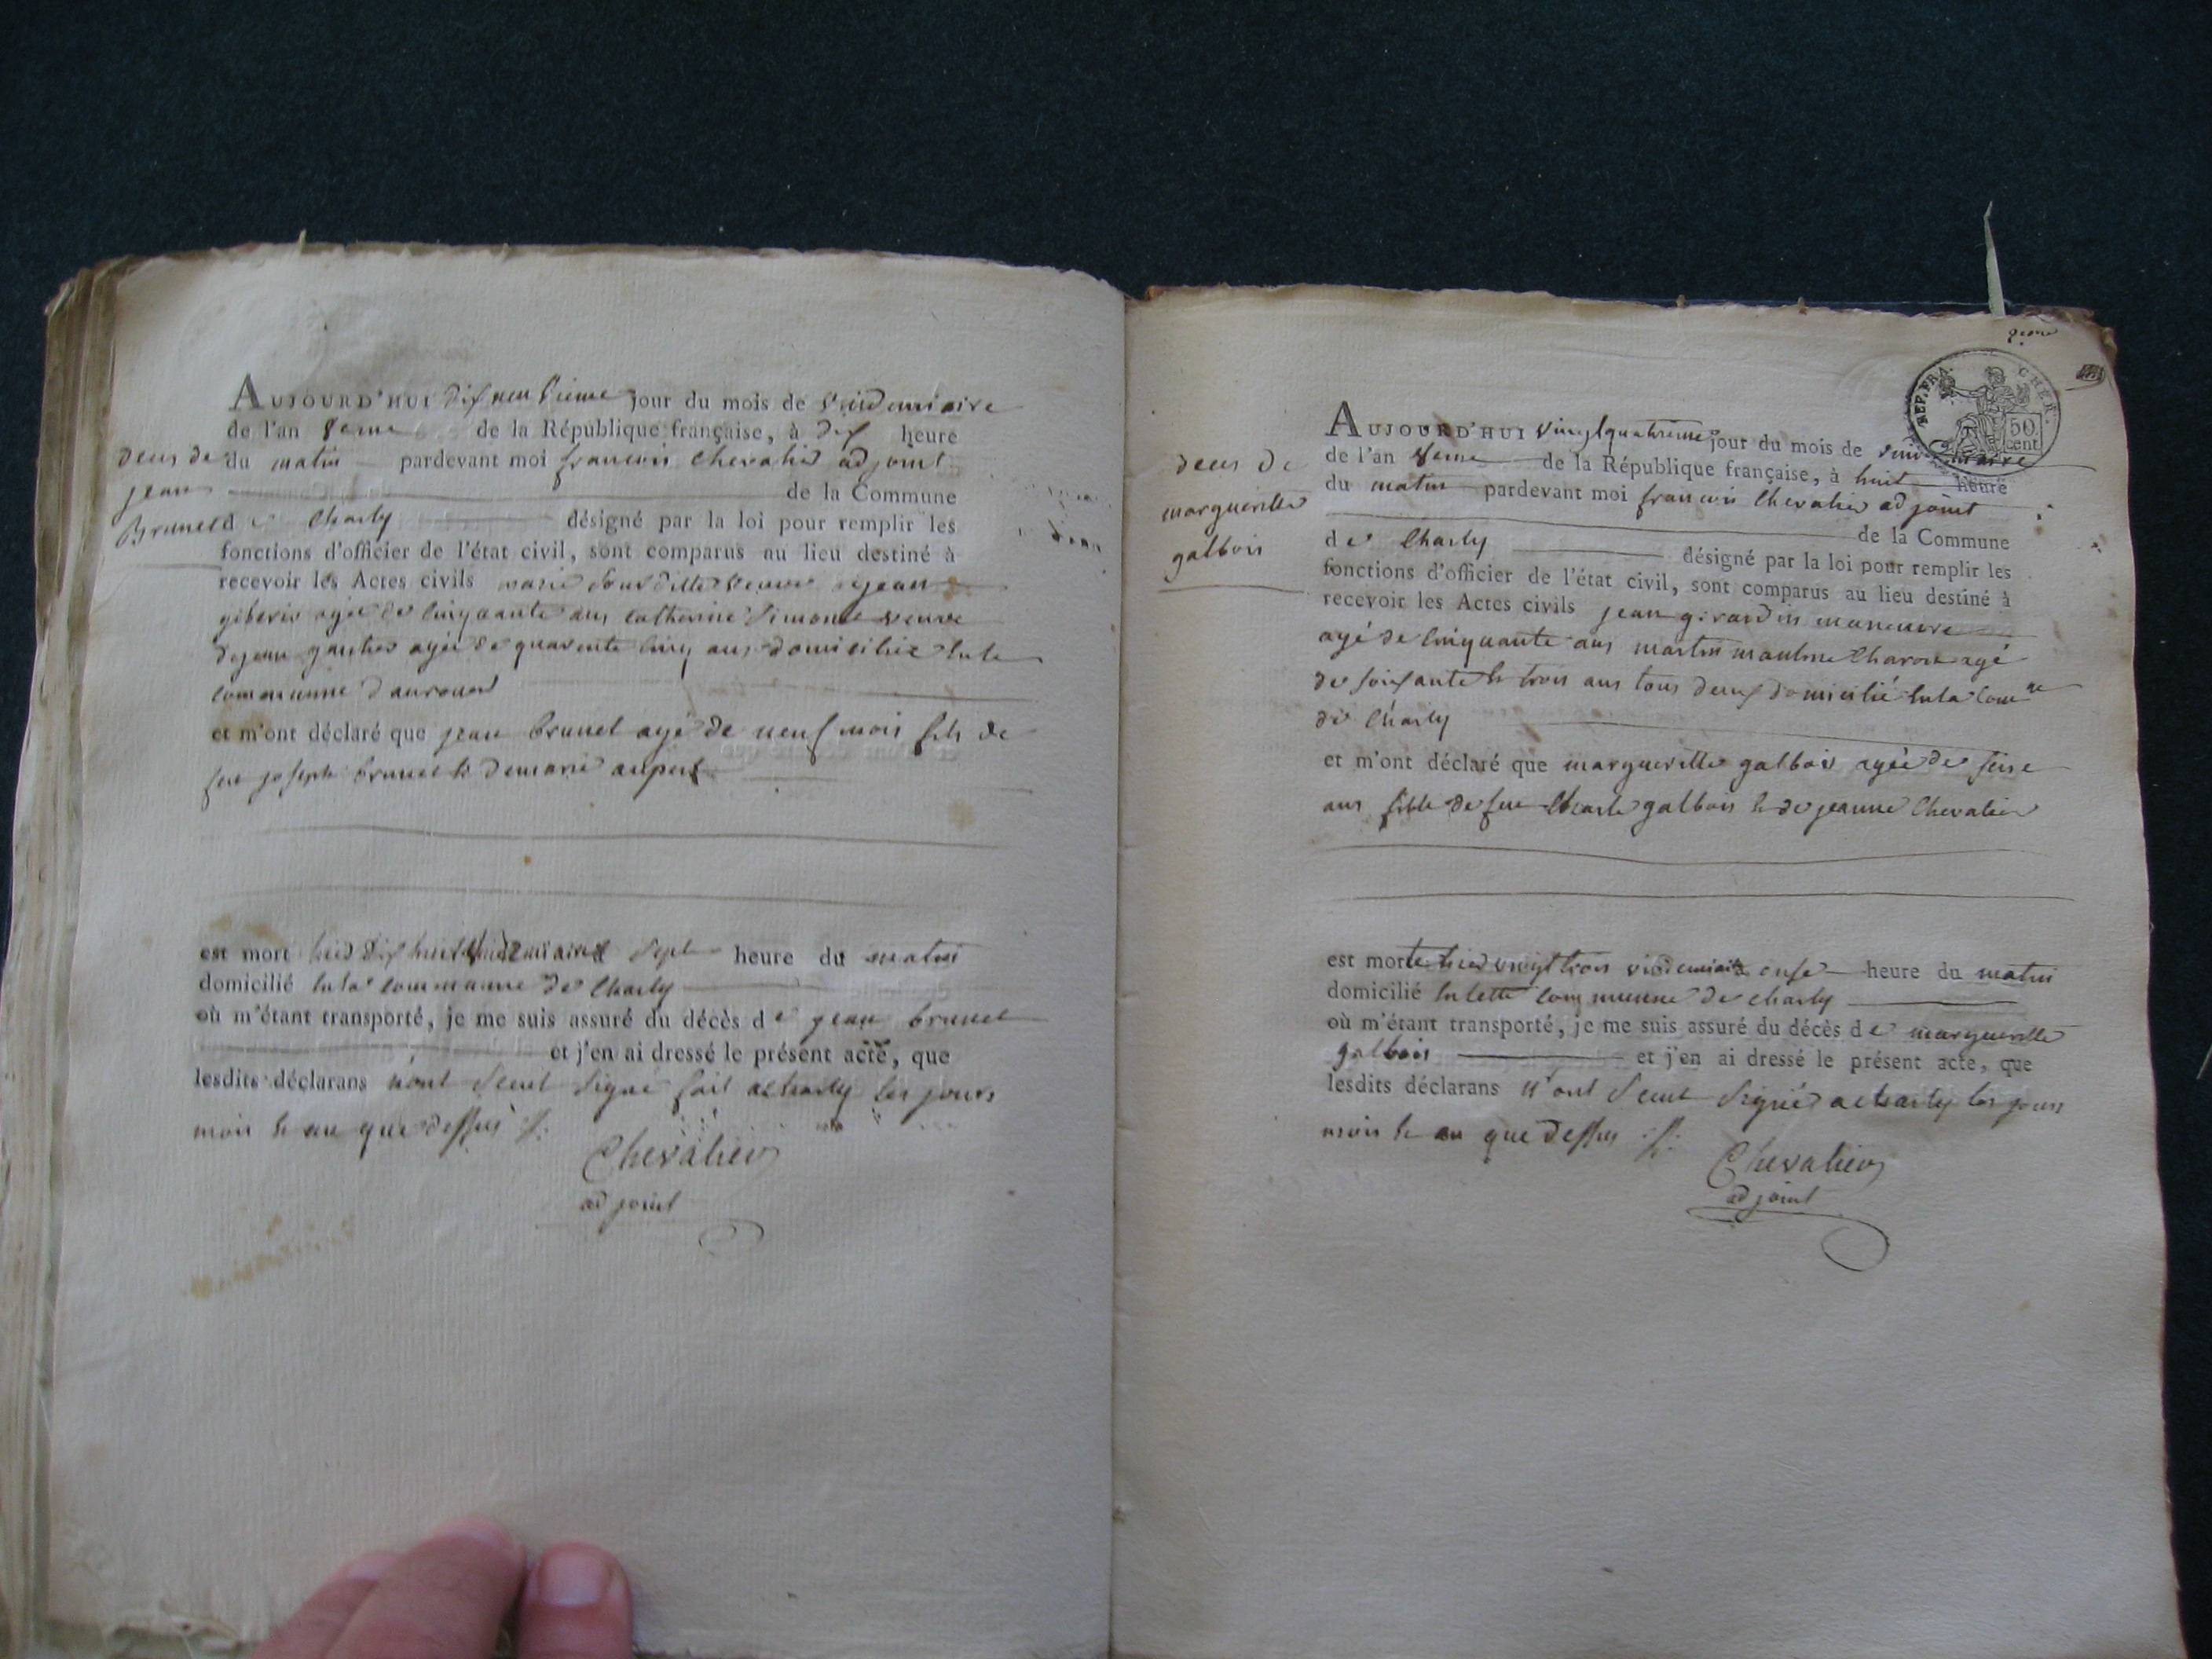 AUJOURD'HUI dix neuvieme jour du mois de vindemiaire
de l'an 8eme de la République française, à dix heure
du matin pardevant moi francois Chevalier adjoint
de la Commune
de Charly désigné par la loi pour remplir les
fonctions d'officier de l'état civil, sont comparus au lieu destiné à
recevoir les Actes civils marie veuve de jean
agée de cinquante ans catherine Simone veuve
de jean gautier agée de quarente cinq ans domiciliée en la
commune
et m'ont déclaré que jean brunet agé de neuf mois fils de
feu joseph brunet & de marie aupert
est mort hier dix huit vindemiaire sept heure du matin
domicilié en la commune de Charly
où m'étant transporté, je me suis assuré du décès de jean brunet
et j'en ai dressé le présent acte, que
lesdits déclarans n'ont seut signé fait a charly les jours
mois & an que dessus
Chevalier
adjoint
deces de
jean
Brunet
AUJOURD'HUI vingt quatrieme jour du mois de
de l'an 8eme de la République française, à huit heure
du matin pardevant moi francois Chevalier adjoint
de la Commune
de Charly désigné par la loi pour remplir les
fonctions d'officier de l'état civil, sont comparus au lieu destiné à
recevoir les Actes civils jean girardin maneuvre
agé de cinquante ans martin Charon agé
de soixante & trois ans tous deux domicilié en la comne
de Charly
et m'ont déclaré que margueritte galbois agée de seise
ans fille de feu Charle galbois & de jeanne Chevalier
est morte hier vingt trois vindemiaire onse heure du matin
domicilié en cette commune de charly
où m'étant transporté, je me suis assuré du décès de margueritte
galbois et j'en ai dressé le présent acte, que
lesdits déclarans n'ont seut signé a charly les jours
mois & an que dessus
Chevalier
adjoint
deces de
margueritte
galbois
REP. FRA.
CHER.
50
cent